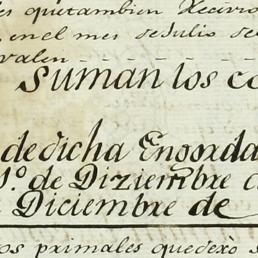 es que tambien Recivio
en el mes de Julio de
valen
Suman los co
de dicha Engorda
1º de Diziembre d
Diciembre de
os primales que dexò s